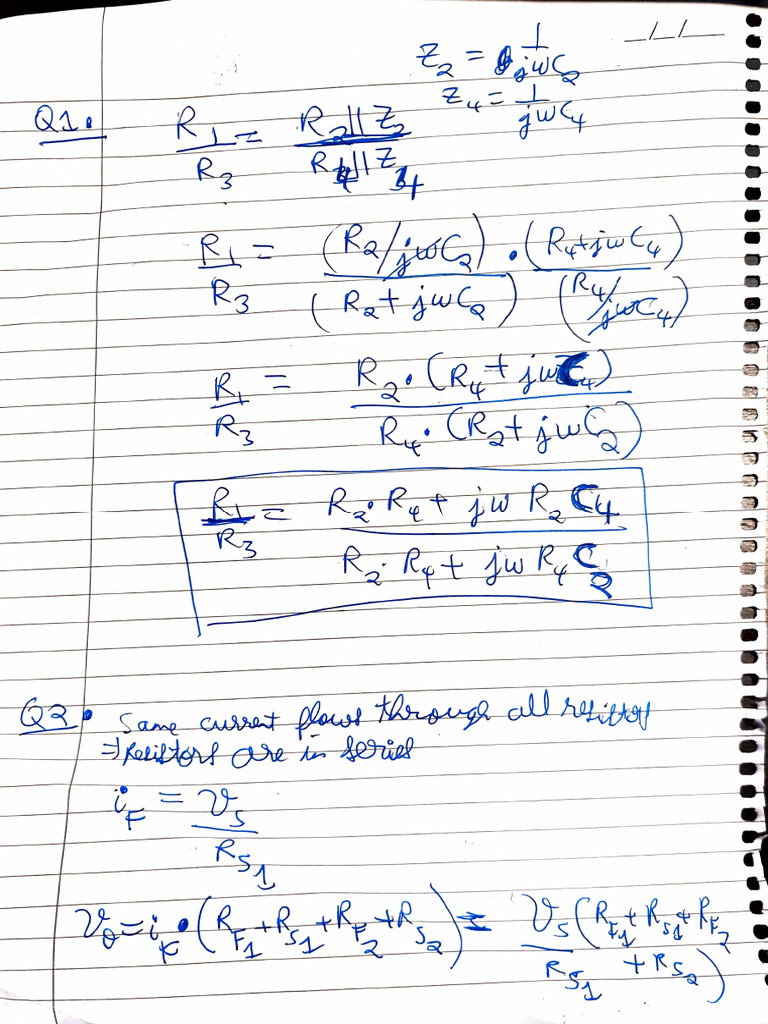 __/__/__
Z₂ = 1/jωC₂
Z₄ = 1/jωC₄
Q1. R₁/R₃ = (R₂||Z₂)/(R₄||Z₄)
R₁/R₃ = (R₂/jωC₂)/(R₂+jωC₂) · (R₄+jωC₄)/(R₄/jωC₄)
R₁/R₃ = R₂·(R₄+jωC₄)/R₄·(R₂+jωC₂)
R₁/R₃ = (R₂·R₄+jωR₂C₄)/(R₂·R₄+jωR₄C₂)
Q2. Same current flows through all resistors
⇒ Resistors are in series
i_F = v_s/R_S₁
v₀ = i_F·(R_F₁+R_S₁+R_F₂+R_S₂) = v_s(R_F₁+R_S₁+R_F₂+R_S₂)/R_S₁